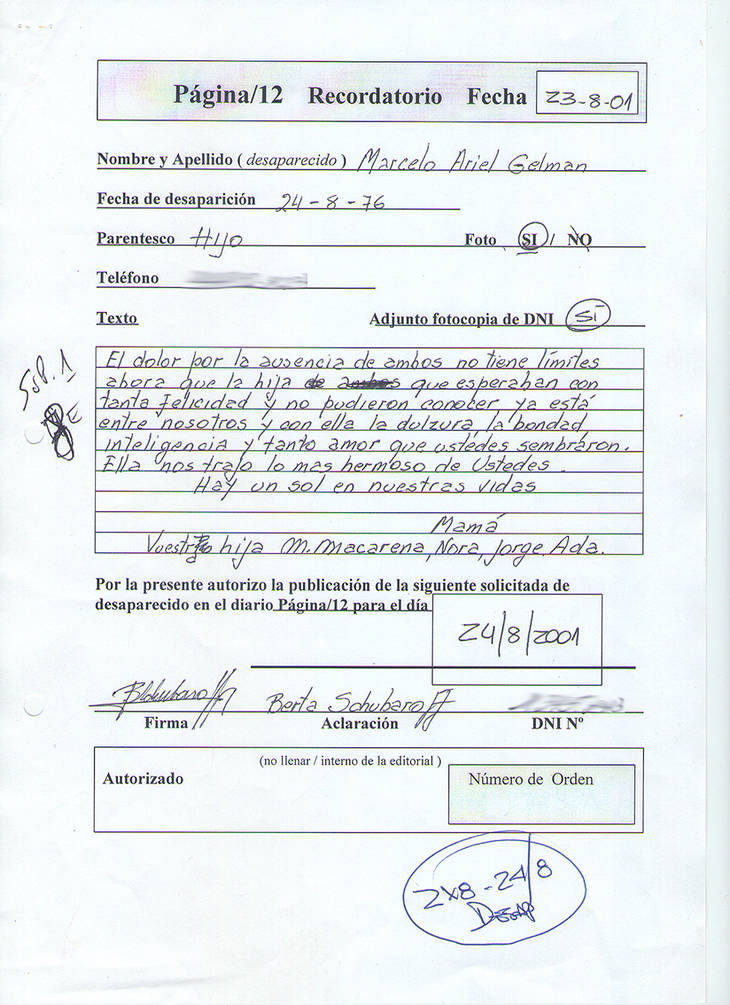 Página/12 Recordatorio Fecha 23-8-01
Nombre y Apellido ( desaparecido ) Marcelo Ariel Gelman
Fecha de desaparición 24-8-76
Parentesco Hijo Foto SI / NO
Teléfono
Texto Adjunto fotocopia de DNI SÍ
El dolor por la ausencia de ambos no tiene límites
ahora que la hija de ambos que esperaban con
tanta felicidad y no pudieron conocer ya está
entre nosotros y con ella la dulzura, la bondad,
inteligencia y tanto amor que ustedes sembraron.
Ella nos trajo lo mas hermoso de Ustedes.
Hay un sol en nuestras vidas
Mamá
hija M. Macarena, Nora, Jorge. Ada.
Por la presente autorizo la publicación de la siguiente solicitada de
desaparecido en el diario Página/12 para el día
24/8/2001
Berta Schubaroff
Firma Aclaración DNI Nº
(no llenar / interno de la editorial )
Autorizado Número de Orden
2x8-24/8